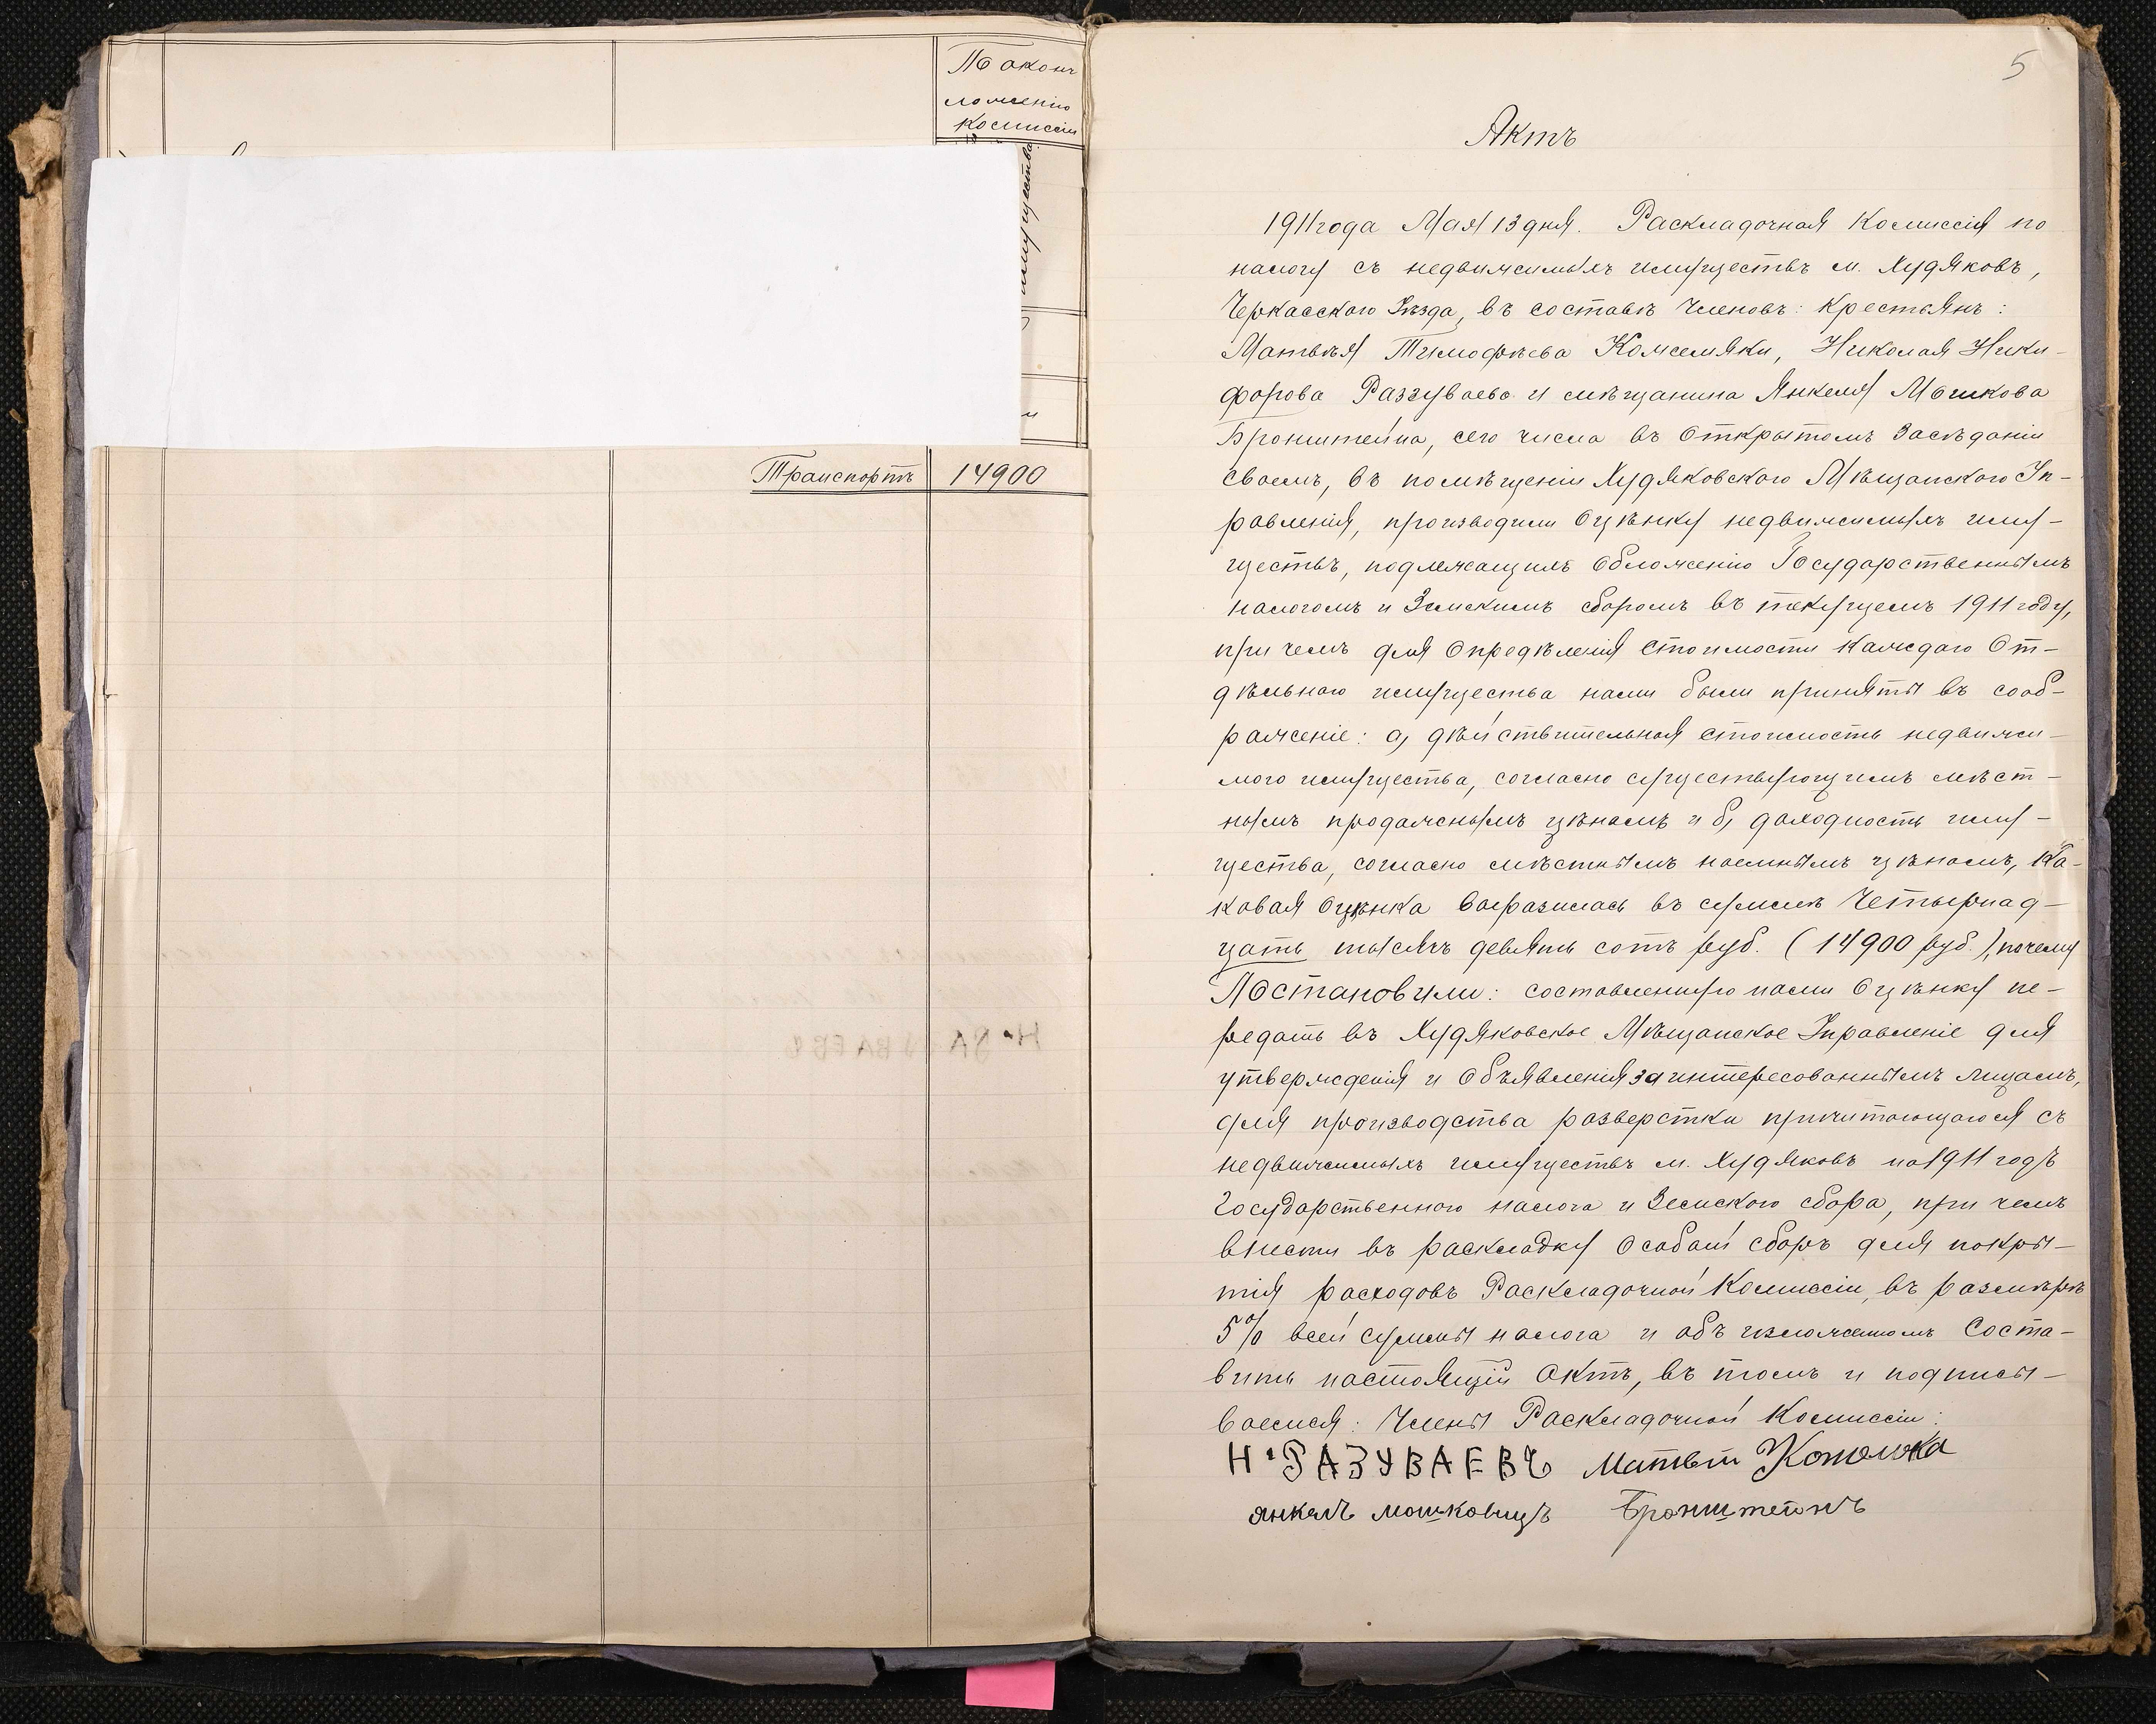 По окон
ложенію
Комиссіи
имущества
Транспортъ 14900
5
Актъ
1911 года Мая 13 дня. Раскладочная Комиссія по
налогу съ недвижимыхъ имуществъ м. Худяковъ,
Черкасскаго Уѣзда, въ составѣ Членовъ: Крестьянъ:
Матвѣя Тимофѣева Кожемяки, Николая Ники-
форова Раззуваева и мѣщанина Янкеля Мошкова
Бронштейна, сего числа въ открытомъ засѣданіи
своемъ, въ помѣщеніи Худяковскаго Мѣщанскаго Уп-
равленія, производили оцѣнку недвижимыхъ иму-
ществъ, подлежащихъ обложенію Государственнымъ
налогомъ и Земскимъ сборомъ въ текущемъ 1911 году,
при чемъ для опредѣленія стоимости каждаго от-
дѣльнаго имущества нами были приняты въ сооб-
раженіе: а, дѣйствительная стоимость недвижи-
маго имущества, согласно существующимъ мѣст-
нымъ продажнымъ цѣнамъ и б, доходность иму-
щества, согласно мѣстнымъ наемнымъ цѣнамъ, ка-
ковая оцѣнка выразилась въ суммѣ Четырнад-
цать тысячъ девять сотъ руб. (14900 руб.), почему
Постановили: составленную нами оцѣнку пе-
редать въ Худяковское Мѣщанское Управленіе для
утвержденія и объявленія заинтересованнымъ лицамъ,
для производства разверстки причитающагося съ
недвижимыхъ имуществъ м. Худяковъ на 1911 годъ
Государственнаго налога и Земскаго сбора, при чемъ
внести въ раскладку особый сборъ для покры-
тія расходовъ Раскладочной Комиссіи, въ размѣрѣ
5% всей суммы налога и объ изложенномъ соста-
вить настоящій актъ, въ томъ и подписы-
ваемся: Члены Раскладочной Комиссіи:
Н. РАЗУВАЕВЪ Матвѣй
янкель мошковичъ Бронштейнъ